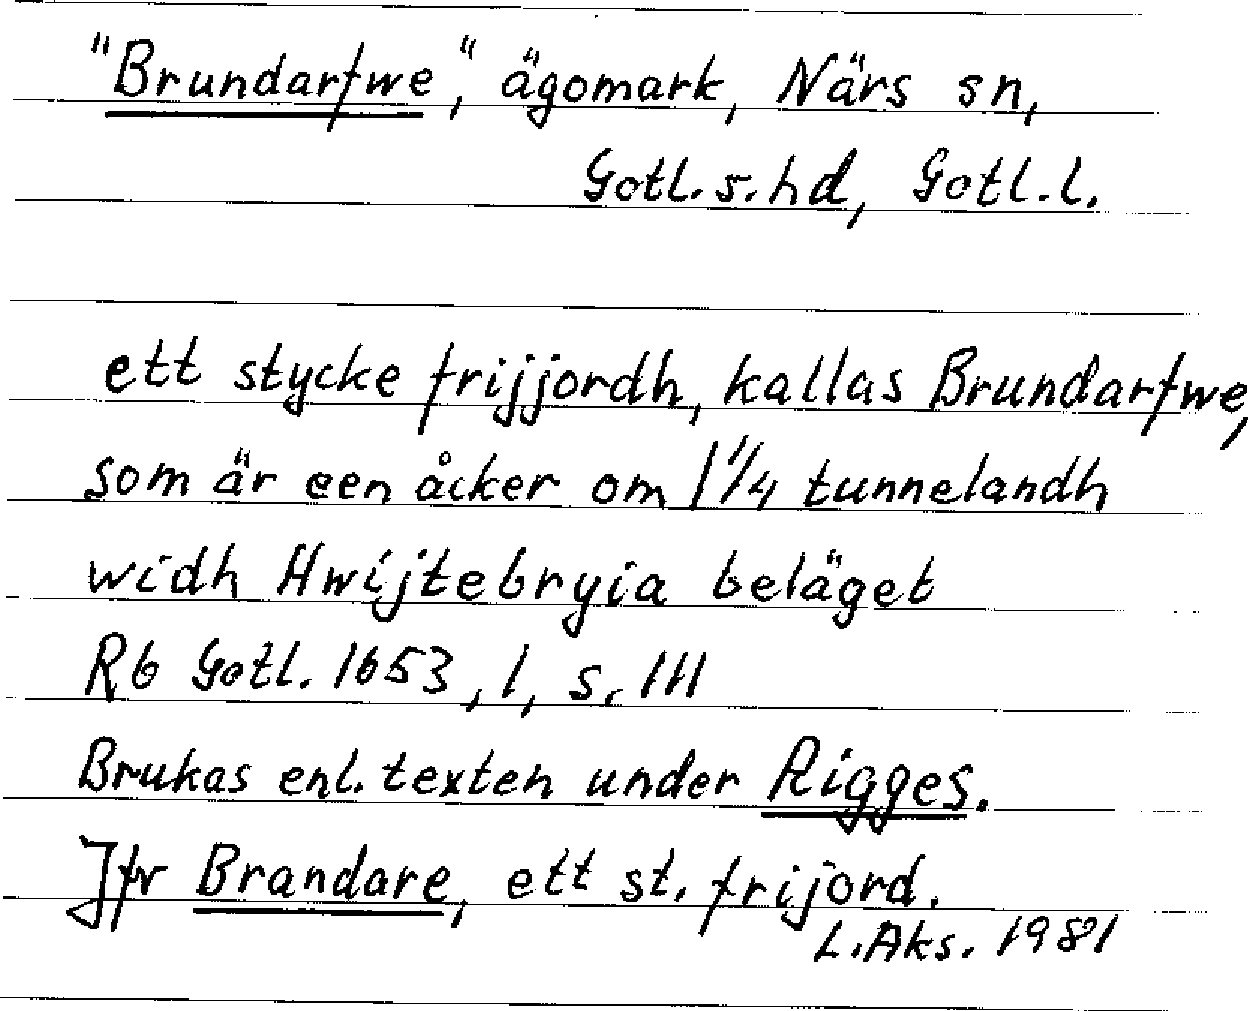 "Brundarfwe", ägomark, Närs sn,
Gotl. s. hd, Gotl. l.
ett stycke frijjordh, kallas Brundarfwe,
som är een åcker om 1 1/4 tunnelandh
widh Hwijtebryia beläget
Rb Gotl. 1653, 1, s. 111
Brukas enl. texten under Rigges.
Jfr Brandare, ett st. frijord.
L. Aks. 1981